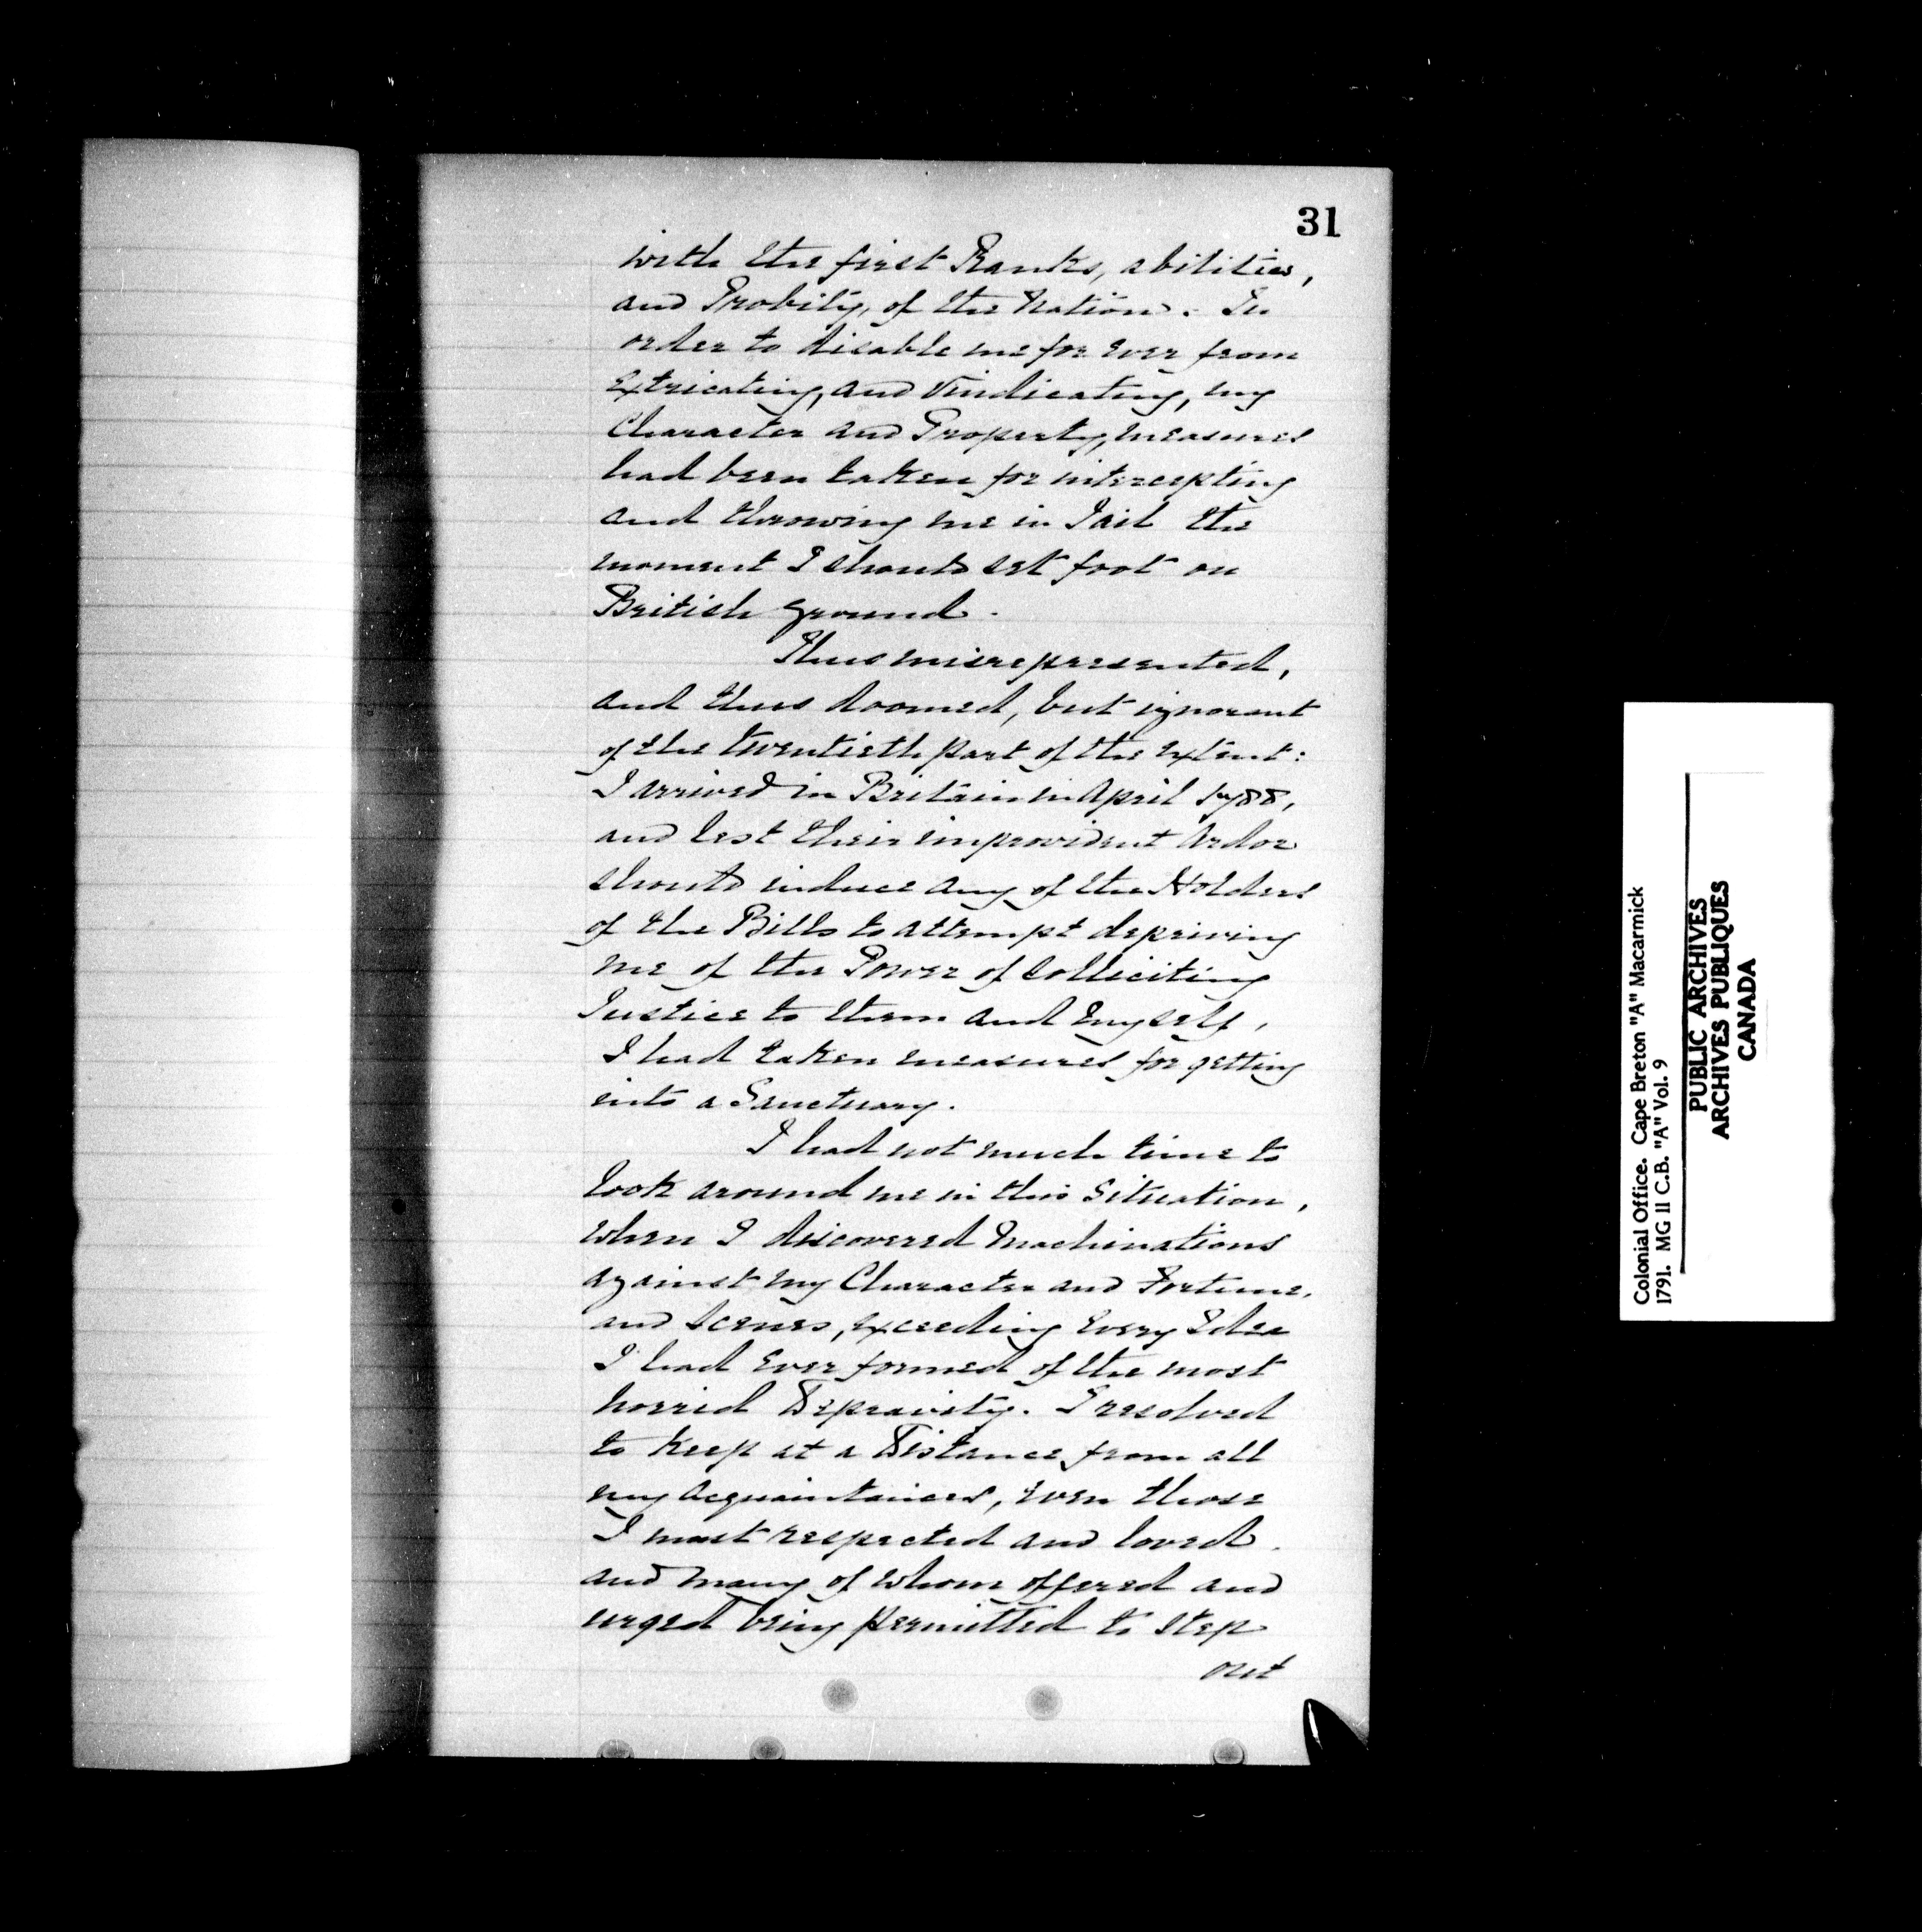 31
with the first Ranks, abilities,
and Probity, of the Nation. In
order to disable me for ever from
Extricating, and Vindicating, my
Character and Property, measures
had been taken for intercepting
and throwing me in Jail the
moment I should set foot on
British ground.
Thus misrepresented,
and thus doomed, but ignorant
of the twentieth part of the extent:
I arrived in Britain in April 1788,
and lest their improvident Ardor
should induce any of the Holders
of the Bills to attempt depriving
me of the Power of Solliciting
Justice to them and myself,
I had taken measures for getting
into a Sanctuary.
I had not much time to
look around me in this Situation,
when I discovered Machinations
against my Character and Fortune,
and Scenes, exceeding Every Idea
I had Ever formed of the most
horrid Depravity. I resolved
to keep at a Distance from all
my acquaintances, even those
I most respected and loved.
and many of whom offered and
urged being permitted to step
out
Colonial Office. Cape Breton "A" Macarmick
1791. MG 11 C.B. "A" Vol. 9
PUBLIC ARCHIVES
ARCHIVES PUBLIQUES
CANADA